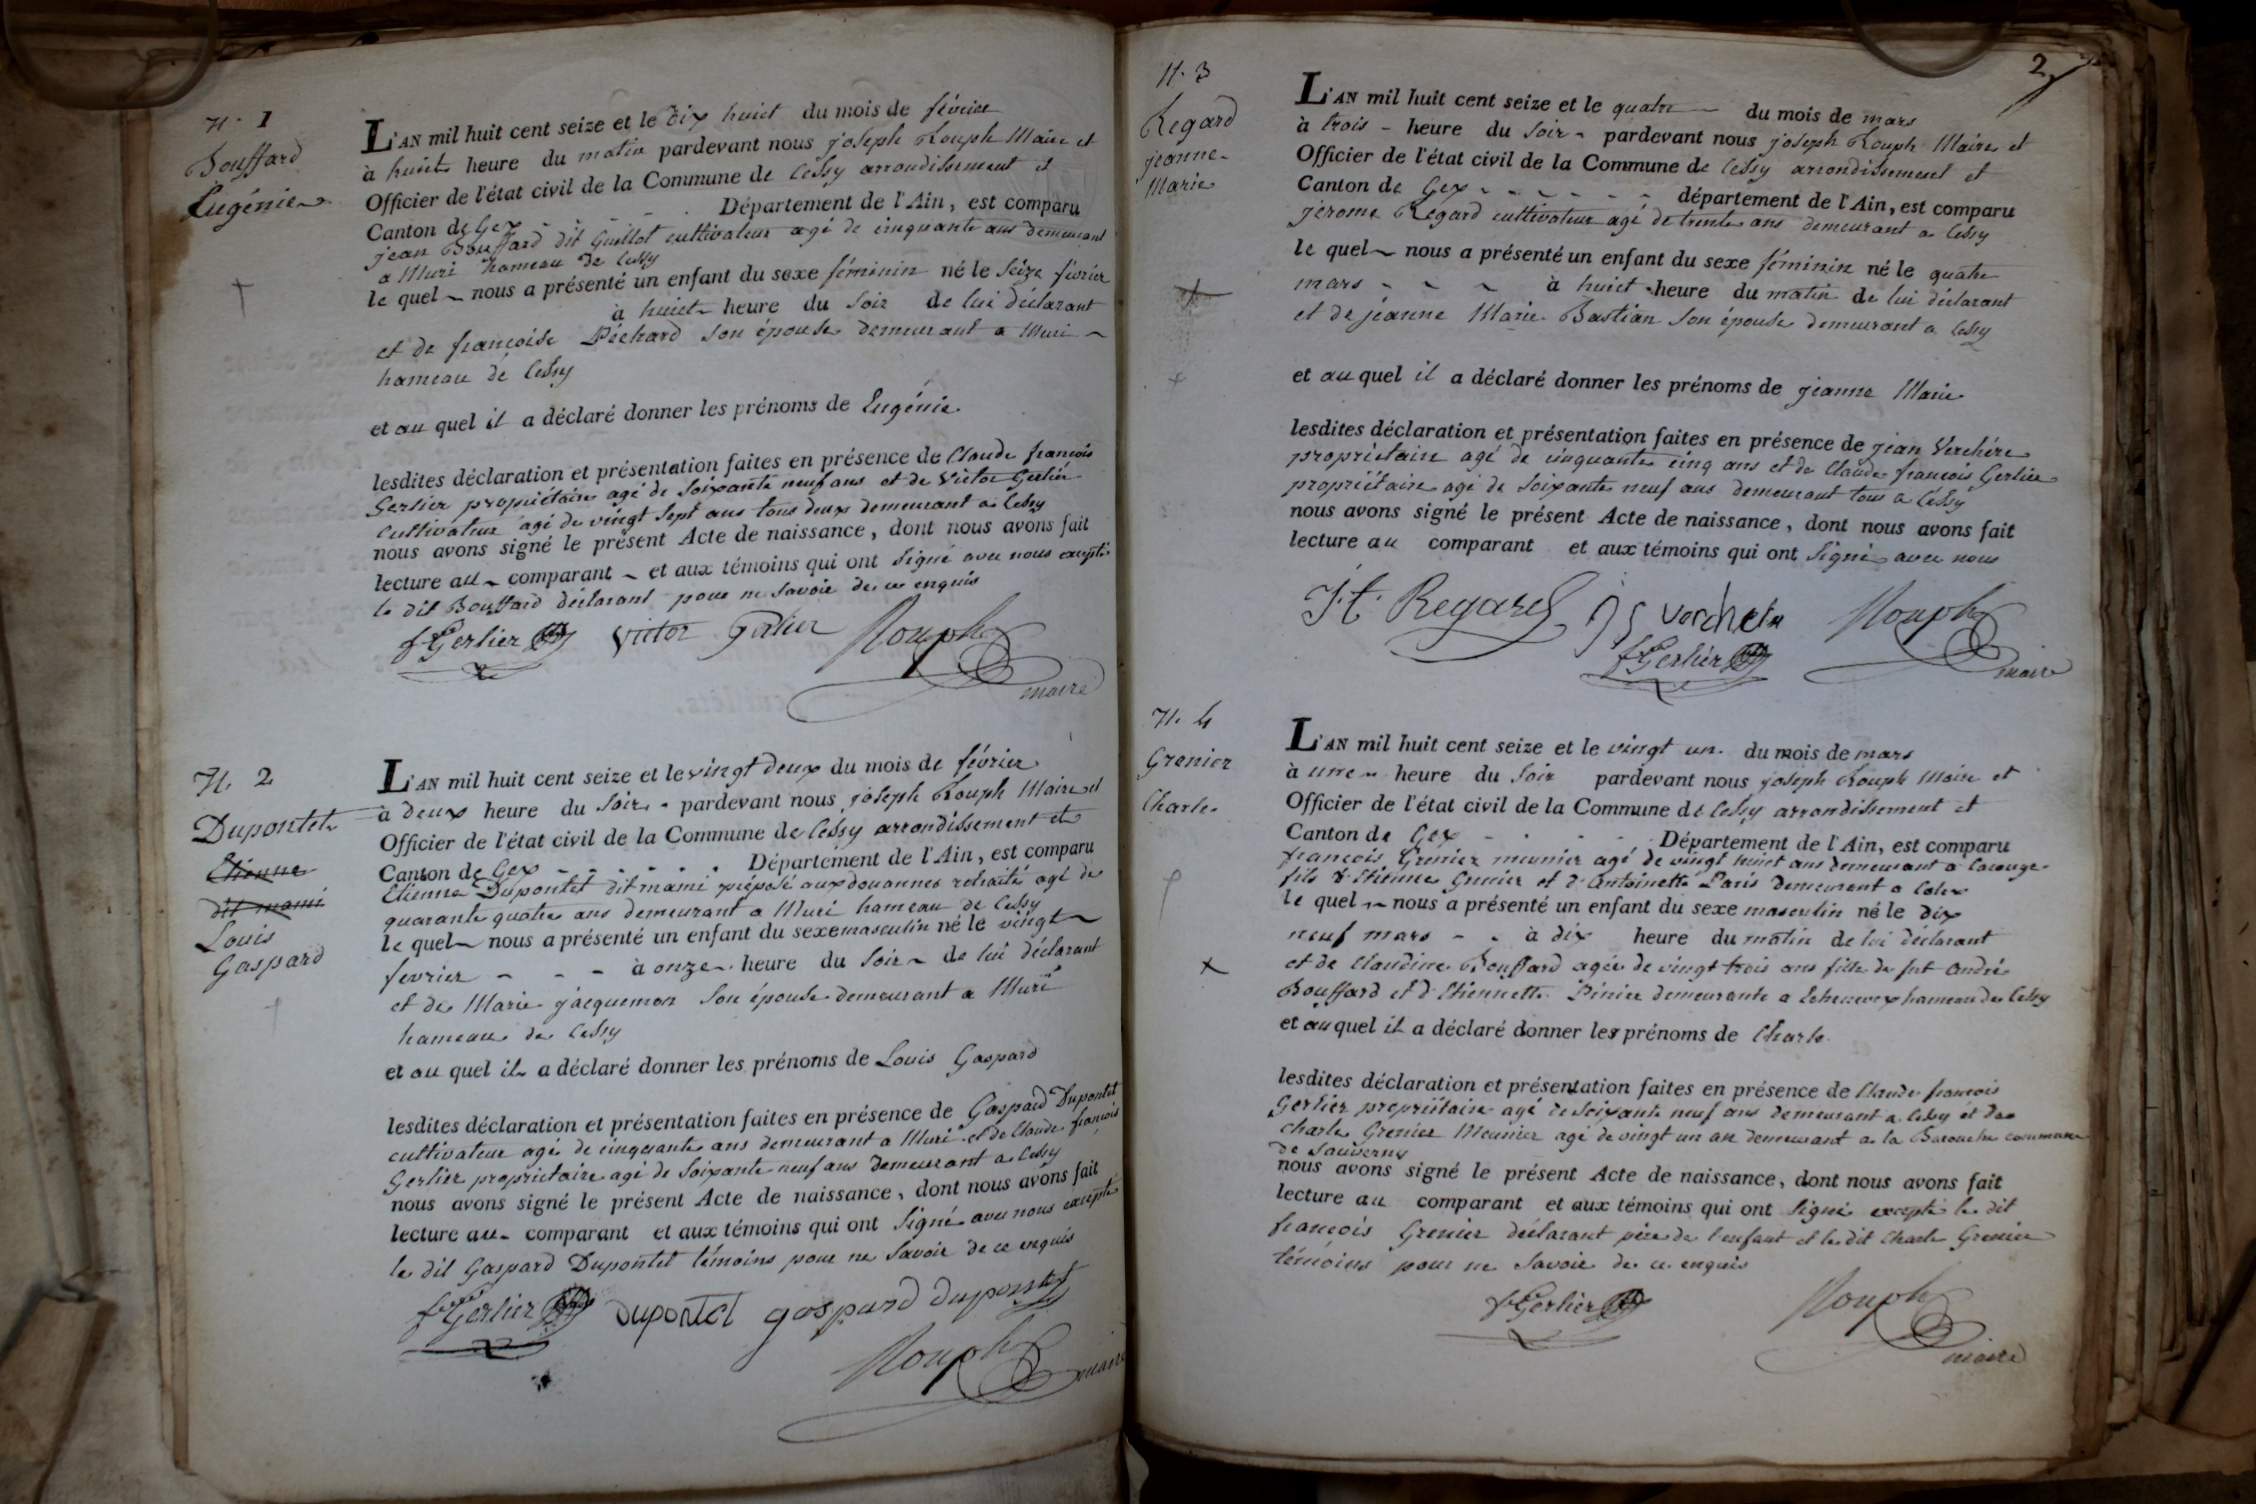 N. 1
Bouffard
Eugénie
L'AN mil huit cent seize et le dix huict du mois de février
à huict heure du matin pardevant nous joseph Rouph Maire et
Officier de l'état civil de la Commune de Cessy arrondissement et
Canton de Gex - - - Département de l'Ain, est comparu
jean Bouffard dit Guillot cultivateur agé de cinquante ans demeurant
a Muri hameau de Cessy
le quel ~ nous a présenté un enfant du sexe féminin né le Seize février
à huict heure du Soir de lui déclarant
et de françoise Péchard son épouse demeurant a Muri ~
hameau de Cessy
et au quel il a déclaré donner les prénoms de Eugénie
lesdites déclaration et présentation faites en présence de Claude françois
Gerlier propriétaire agé de Soixante neuf ans et de Victor Gerlier
Cultivateur agé de vingt Sept ans tous deux demeurant a Cessy
nous avons signé le présent Acte de naissance, dont nous avons fait
lecture au ~ comparant ~ et aux témoins qui ont Signé avec nous excepté
le dit Bouffard déclarant pour ne Savoir de ce enquis
f Gerlier Victor Gerlier Rouph
maire
N. 2
Dupontet
Etienne
dit mami
Louis
Gaspard
L'AN mil huit cent seize et le vingt deux du mois de février
à deux heure du Soir - pardevant nous joseph Rouph Maire et
Officier de l'état civil de la Commune de Cessy arrondissement et
Canton de Gex - - - - - Département de l'Ain, est comparu
Etienne Dupontet dit mami préposé aux douannes retraité agé de
quarante quatre ans demeurant a Muri hameau de Cessy
le quel ~ nous a présenté un enfant du sexe masculin né le vingt ~
fevrier - - - à onze heure du Soir ~ de lui déclarant
et de Marie jacquemon Son épouse demeurant a Muri
hameau de Cessy
et au quel il a déclaré donner les prénoms de Louis Gaspard
lesdites déclaration et présentation faites en présence de Gaspard Dupontet
cultivateur agé de cinquante ans demeurant a Muri et de Claude françois
Gerlier propriétaire agé de Soixante neuf ans demeurant a Cessy
nous avons signé le présent Acte de naissance, dont nous avons fait
lecture au - comparant et aux témoins qui ont Signé avec nous excepté
le dit Gaspard Dupontet témoins pour ne Savoir de ce enquis
f Gerlier Dupontet gaspard dupontet
Rouph maire
2
N. 3
Regard
jeanne
Marie
L'AN mil huit cent seize et le quatre - du mois de mars
à trois - heure du Soir - pardevant nous joseph Rouph Maire et
Officier de l'état civil de la Commune de Cessy arrondissement et
Canton de Gex - - - - - - département de l'Ain, est comparu
jérome Regard cultivateur agé de trente ans demeurant a Cessy
le quel ~ nous a présenté un enfant du sexe féminin né le quatre
mars - - - à huict heure du matin de lui déclarant
et de jéanne Marie Bastian Son épouse demeurant a Cessy
et au quel il a déclaré donner les prénoms de jeanne Marie
lesdites déclaration et présentation faites en présence de jean Verchère
propriétaire agé de cinquante cinq ans et de Claude françois Gerlier
propriétaire agé de Soixante neuf ans demeurant tous a Cessy
nous avons signé le présent Acte de naissance, dont nous avons fait
lecture au comparant et aux témoins qui ont Signé avec nous
Regard Rouph
f Gerlier maire
N. 4
Grenier
Charle
L'AN mil huit cent seize et le vingt un du mois de mars
à une heure du Soir pardevant nous joseph Rouph Maire et
Officier de l'état civil de la Commune de Cessy arrondissement et
Canton de Gex - - - - Département de l'Ain, est comparu
françois Grenier meunier agé de vingt huict ans demeurant a
fils d'Etienne Grenier et d'Antoinette Paris demeurant a
le quel ~ nous a présenté un enfant du sexe masculin né le dix
neuf mars - - à dix heure du matin de lui déclarant
et de Claudine Bouffard agée de vingt trois ans fille de fut André
Bouffard et d'Etiennette Pinier demeurante a Echenevex hameau de Cessy
et au quel il a déclaré donner les prénoms de Charle
lesdites déclaration et présentation faites en présence de Claude françois
Gerlier propriétaire agé de Soixante neuf ans demeurant a Cessy et de
Charle Grenier Meunier agé de vingt un an demeurant a la commune
de Sauverny
nous avons signé le présent Acte de naissance, dont nous avons fait
lecture au comparant et aux témoins qui ont Signé excepté le dit
francois Grenier déclarant père de l'enfant et le dit Charle Grenier
témoins pour ne Savoir de ce enquis
f Gerlier Rouph
maire